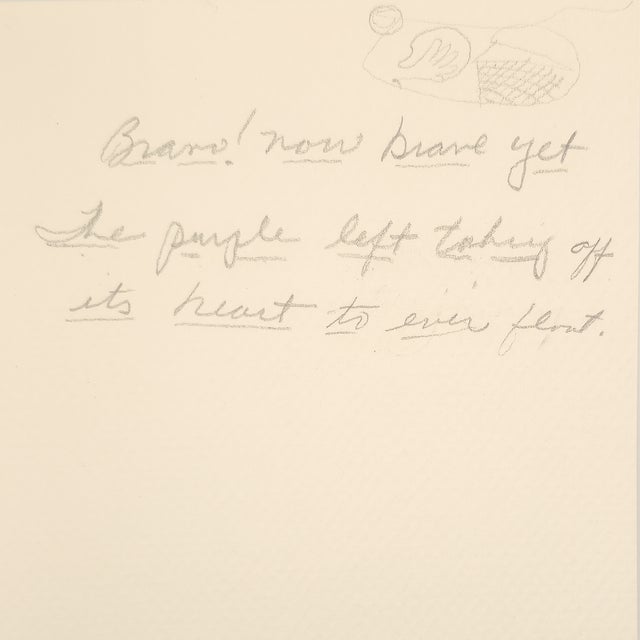 Bravo! now brave yet
The purple left taking off
its heart to ever float.